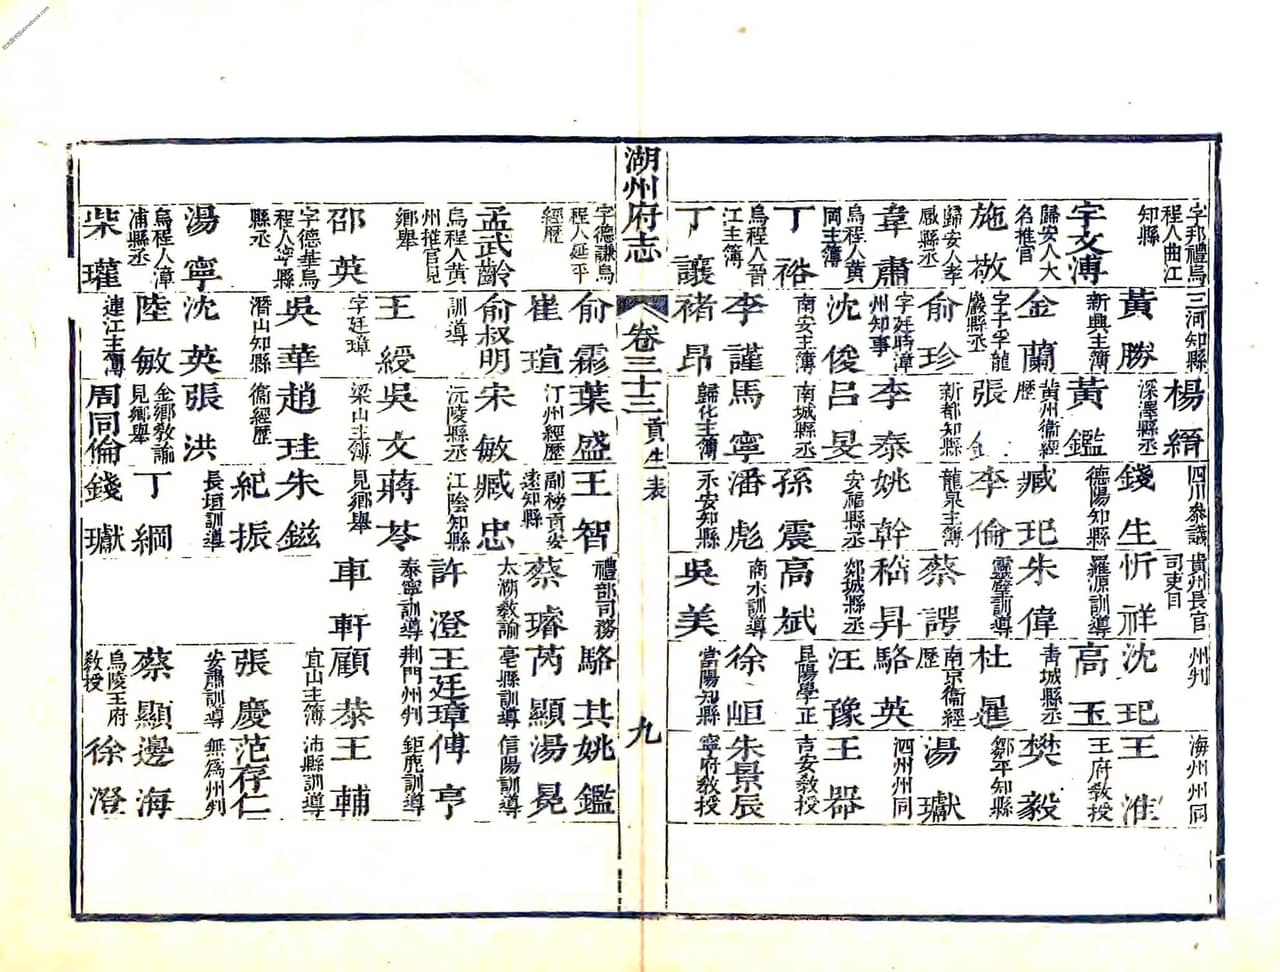 字邦禮烏程人曲江 三河知縣 楊縉 四川參議 貴州長官司吏目 州判 海州州同
知縣 黃勝 深澤縣丞 錢生 忻祥 沈玘 王淮
宇文溥 新興主簿 黃鑑 德陽知縣 羅源訓導 高玉 王府教授
歸安人大名推官 金蘭 黃州衞經歷 臧玘 朱偉 青城縣丞 樊毅
施敬 字子孚龍巖縣丞 張 李倫 靈璧訓導 杜暹 鄒平知縣
歸安人孝感縣丞 俞珍 新都知縣 龍泉主簿 蔡諤 南京衞經歷 湯瓛
韋肅 字廷聘漳州知事 李泰 姚幹 嵇昇 駱英 泗州州同
烏程人黃岡主簿 沈俊 呂旻 安福縣丞 郯城縣丞 汪豫 王器
丁裕 南安主簿 南城縣丞 孫震 高斌 昆陽學正 吉安教授
烏程人晉江主簿 李謹 馬寧 潘彪 商水訓導 徐恒 朱景辰
丁讓 褚昂 歸化主簿 永安知縣 吳美 當陽知縣 寧府教授
湖州府志 卷三十三 貢生表 九
字德謙烏程人延平 俞霦 葉盛 王智 禮部司務 駱其 姚鑑
經歷 崔瑄 汀州經歷 副榜貢安遠知縣 蔡璿 芮顯 湯晃
孟武齡 俞叔明 宋敏 臧忠 太湖教諭 亳縣訓導 信陽訓導
烏程人黃州推官見 訓導 沅陵縣丞 江陰知縣 許澄 王廷璋 傅亨
鄉舉 王綬 吳文 蔣苓 泰寧訓導 荆門州判 鉅鹿訓導
邵英 字廷璋 梁山主簿 見鄉舉 車軒 顧恭 王輔
字德華烏程人寧縣 吳華 趙珪 朱鎡 宜山主簿 沛縣訓導
縣丞 潛山知縣 衞經歷 紀振 張慶 范存仁
湯寧 沈英 張洪 長垣訓導 安肅訓導 無爲州判
烏程人漳浦縣丞 陸敏 金鄉教諭見鄉舉 丁綱 蔡顯 邊海
柴瓘 連江主簿 周同倫 錢瓛 烏陵王府教授 徐澄